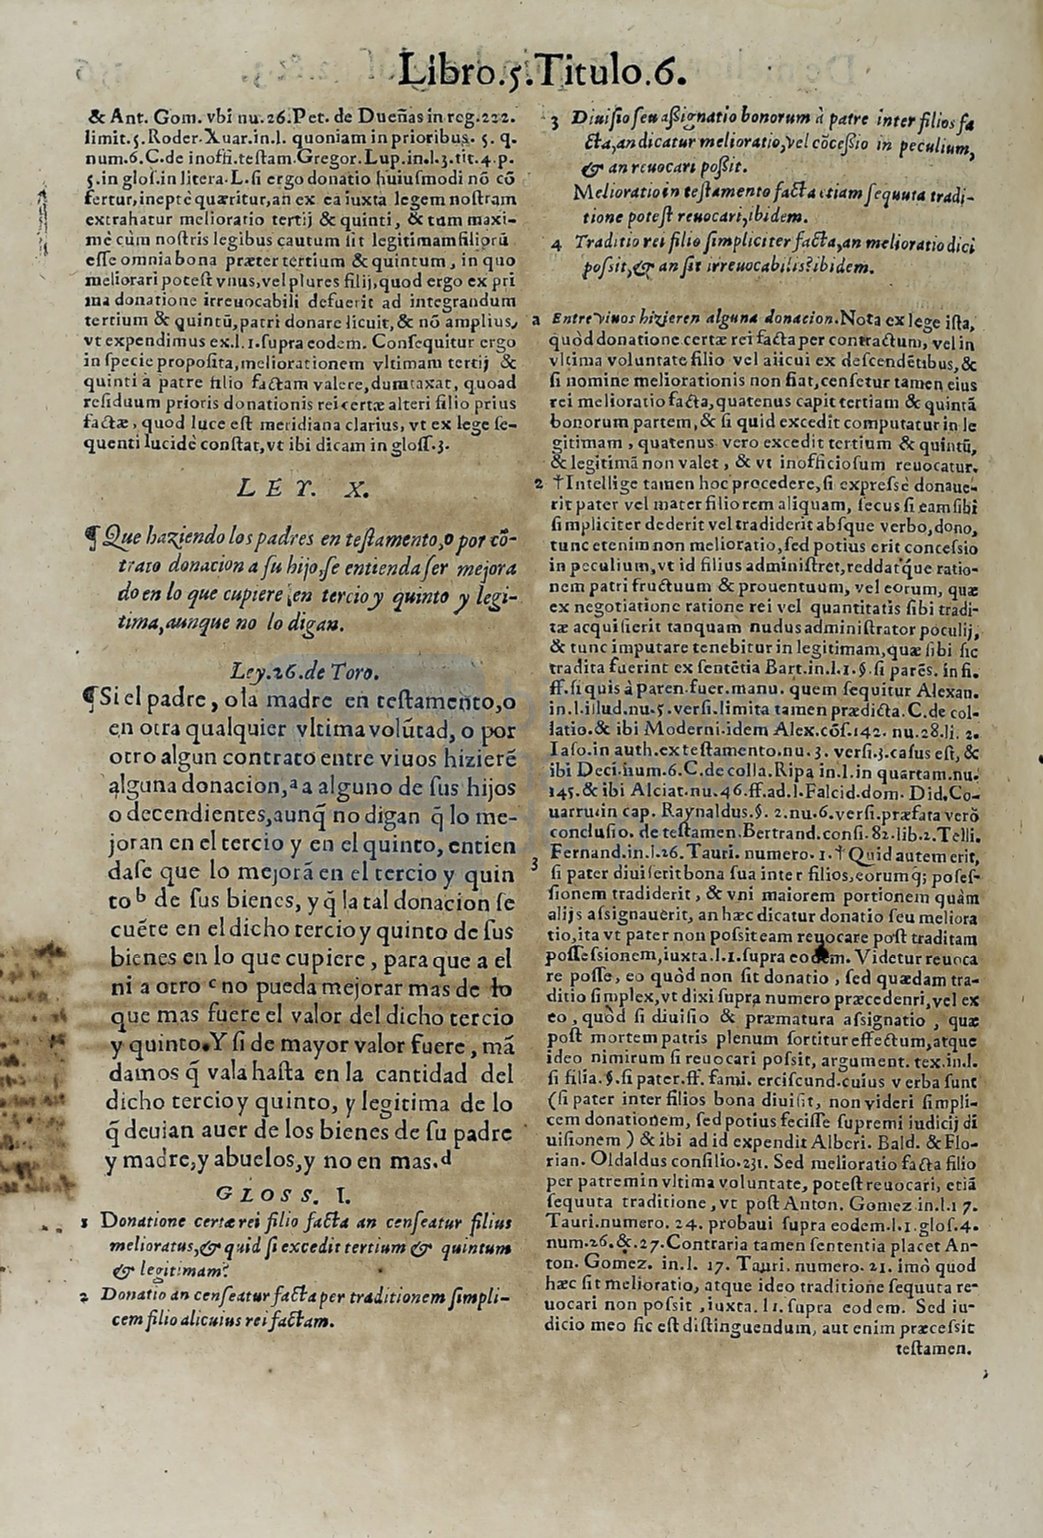 Libro.5.Titulo.6.
& Ant. Gom. vbi nu.26.Pet. de Dueñas in reg.222.
limit.5.Roder.Xuar.in.l. quoniam in prioribus. 5. q.
num.6.C.de inoffi.teſtam.Gregor.Lup.in.l.3.tit.4.p.
5.in gloſ.in litera.L.ſi ergo donatio huiuſmodi nō cō
fertur,ineptè quæritur,an ex ea iuxta legem noſtram
extrahatur melioratio tertij & quinti, & tum maxi-
mè cùm noſtris legibus cautum ſit legitimam filiorū
eſſe omnia bona præter tertium & quintum, in quo
meliorari poteſt vnus,vel plures filij,quod ergo ex pri
ma donatione irreuocabili defuerit ad integrandum
tertium & quintū,patri donare licuit,& nō amplius,
vt expendimus ex.l.1.ſupra eodem. Conſequitur ergo
in ſpecie propoſita,meliorationem vltimam tertij &
quinti à patre filio factam valere,dumtaxat, quoad
reſiduum prioris donationis rei certæ alteri filio prius
factæ, quod luce eſt meridiana clarius, vt ex lege ſe-
quenti lucidè conſtat,vt ibi dicam in gloſſ.3.
L E Y. X.
¶ Que haziendo los padres en teſtamento,o por cō-
trato donacion a ſu hijo,ſe entienda ſer mejora
do en lo que cupiere en tercio y quinto y legi-
tima,aunque no lo digan.
Ley.26.de Toro.
¶Si el padre, o la madre en teſtamento,o
en otra qualquier vltima volūtad, o por
otro algun contrato entre viuos hizierē
alguna donacion,ª a alguno de ſus hijos
o decendientes,aunq̄ no digan q̄ lo me-
joran en el tercio y en el quinto, entien
daſe que lo mejorā en el tercio y quin
to ᵇ de ſus bienes, y q̄ la tal donacion ſe
cuēte en el dicho tercio y quinto de ſus
bienes en lo que cupiere, para que a el
ni a otro ᶜ no pueda mejorar mas de lo
que mas fuere el valor del dicho tercio
y quinto.Y ſi de mayor valor fuere, mā
damos q̄ vala haſta en la cantidad del
dicho tercio y quinto, y legitima de lo
q̄ deuian auer de los bienes de ſu padre
y madre,y abuelos,y no en mas.ᵈ
G L O S S. I.
1 Donatione certæ rei filio facta an cenſeatur filius
melioratus,& quid ſi excedit tertium & quintum
& legitimam?
2 Donatio an cenſeatur facta per traditionem ſimpli-
cem filio alicuius rei factam.
3 Diuiſio ſeu aſsignatio bonorum à patre inter filios fa
cta,an dicatur melioratio,vel cōceſsio in peculium,
& an reuocari poſsit.
Melioratio in teſtamento facta etiam ſequuta tradi-
tione poteſt reuocari,ibidem.
4 Traditio rei filio ſimpliciter facta,an melioratio dici
poſsit,& an ſit irreuocabilis?ibidem.
a Entre viuos hizieren alguna donacion.Nota ex lege iſta,
quòd donatione certæ rei facta per contractum, vel in
vltima voluntate filio vel alicui ex deſcendētibus,&
ſi nomine meliorationis non fiat,cenſetur tamen eius
rei melioratio facta,quatenus capit tertiam & quintā
bonorum partem,& ſi quid excedit computatur in le
gitimam, quatenus vero excedit tertium & quintū,
& legitimā non valet, & vt inofficioſum reuocatur.
2 †Intellige tamen hoc procedere,ſi expreſsè donaue-
rit pater vel mater filio rem aliquam, ſecus ſi eam ſibi
ſimpliciter dederit vel tradiderit abſque verbo,dono,
tunc etenim non melioratio,ſed potius erit conceſsio
in peculium,vt id filius adminiſtret,reddatque ratio-
nem patri fructuum & prouentuum, vel eorum, quæ
ex negotiatione ratione rei vel quantitatis ſibi tradi-
tæ acquiſierit tanquam nudus adminiſtrator poculij,
& tunc imputare tenebitur in legitimam,quæ ſibi ſic
tradita fuerint ex ſentētia Bart.in.l.1.§.ſi parēs. in fi.
ff.ſi quis à paren.fuer.manu. quem ſequitur Alexan.
in.l.illud.nu.5.verſi.limita tamen prædicta.C.de col-
latio.& ibi Moderni.idem Alex.cōſ.142. nu.28.li. 2.
Iaſo.in auth.ex teſtamento.nu. 3. verſi.3.caſus eſt, &
ibi Deci.num.6.C.de colla.Ripa in.l.in quartam.nu.
145.& ibi Alciat.nu.46.ff.ad.l.Falcid.dom. Did.Co-
uarru.in cap. Raynaldus.§. 2.nu.6.verſi.præfata verò
concluſio. de teſtamen.Bertrand.conſi.82.lib.2.Telli.
Fernand.in.l.26.Tauri. numero. 1.†Quid autem erit,
3 ſi pater diuiſerit bona ſua inter filios,eorumq; poſeſ-
ſionem tradiderit, & vni maiorem portionem quàm
alijs aſsignauerit, an hæc dicatur donatio ſeu meliora
tio,ita vt pater non poſsit eam reuocare poſt traditam
poſſeſsionem,iuxta.l.1.ſupra eodem. Videtur reuoca
re poſſe, eo quòd non ſit donatio, ſed quædam tra-
ditio ſimplex,vt dixi ſupra numero præcedenri,vel ex
eo, quòd ſi diuiſio & præmatura aſsignatio, quæ
poſt mortem patris plenum ſortitur effectum,atque
ideo nimirum ſi reuocari poſsit, argument. tex.in.l.
ſi filia.§.ſi pater.ff. fami. erciſcund.cuius verba ſunt
(ſi pater inter filios bona diuiſit, non videri ſimpli-
cem donationem, ſed potius feciſſe ſupremi iudicij di
uiſionem ) & ibi ad id expendit Alberi. Bald. & Flo-
rian. Oldaldus conſilio.231. Sed melioratio facta filio
per patrem in vltima voluntate, poteſt reuocari, etiā
ſequuta traditione, vt poſt Anton. Gomez in.l.17.
Tauri.numero. 24. probaui ſupra eodem.l.1.gloſ.4.
num.26.&.27.Contraria tamen ſententia placet An-
ton. Gomez. in.l. 17. Tauri. numero. 21. imò quod
hæc ſit melioratio, atque ideo traditione ſequuta re-
uocari non poſsit, iuxta. l 1. ſupra eodem. Sed iu-
dicio meo ſic eſt diſtinguendum, aut enim præceſsit
teſtamen.